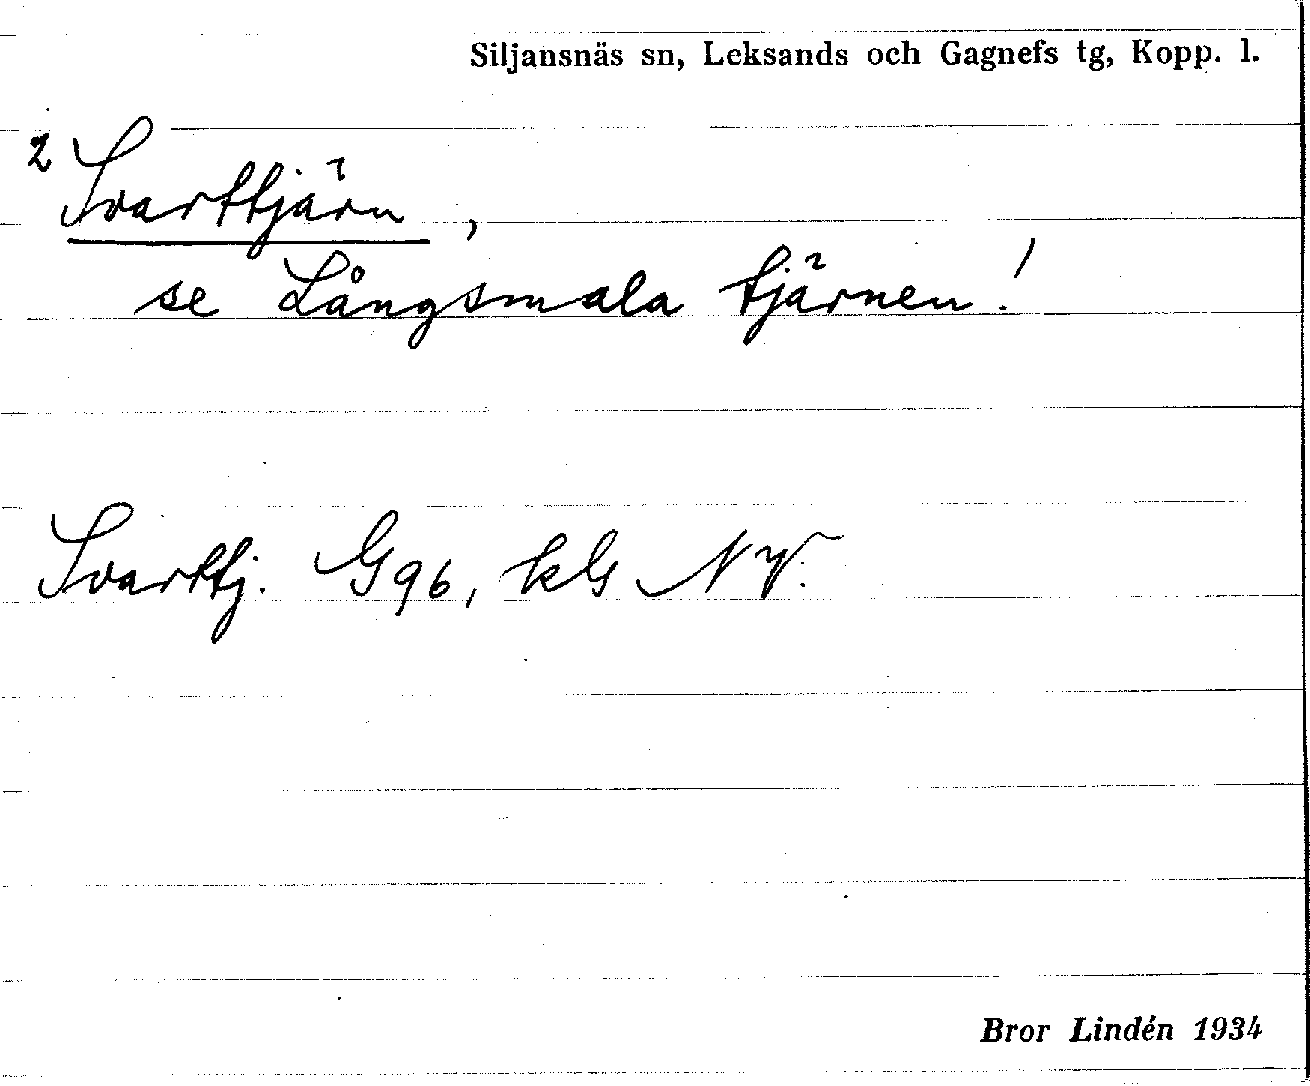 Siljansnäs sn, Leksands och Gagnefs tg, Kopp. l.
2 Svarttjärn,
se Långsmala tjärnen!
Svarttj. G96, kG NV.
Bror Lindén 1934